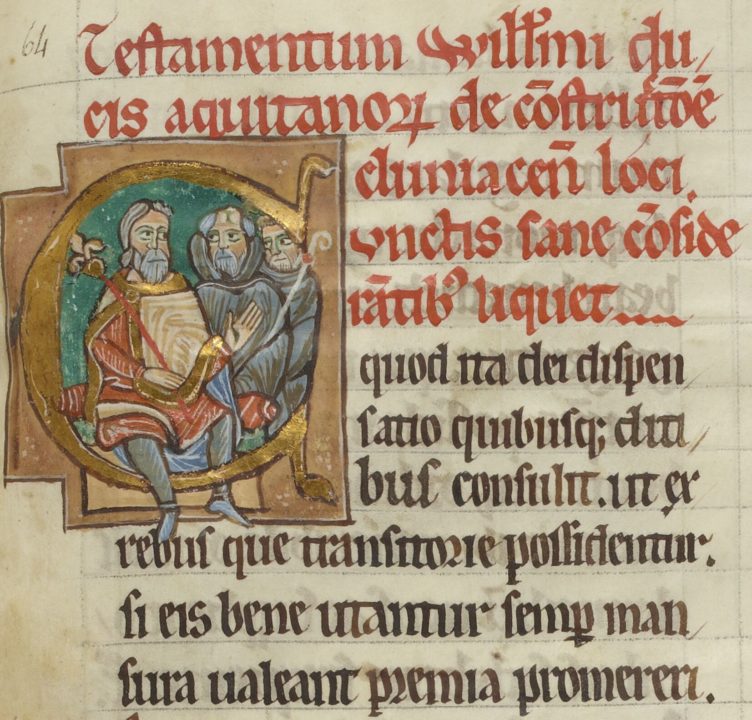 64
Testamentum Willr̃mi du/
cis aquitanoꝝ de cõstructõe
cluniacen̄ loci.
Cvnctis sane cõside
rãtibꝰ liquet
quod ita dei dispen
satio quibusq; diti/
bus consulit. ut ex
rebus que transitorie possidentur.
si eis bene utantur semꝑ man
sura ualeant premia promereri.